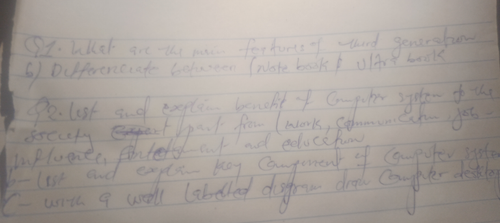 Q1. What are the main features of third generation
b) Differenciate between (note book & ultra book
Q2. List and explain benefit of Computer system of the
Society part from (work, communication, jobs
influence, out and education
- List and explain key Component of Computer system
C- with a well labelled diagram draw Computer desktop